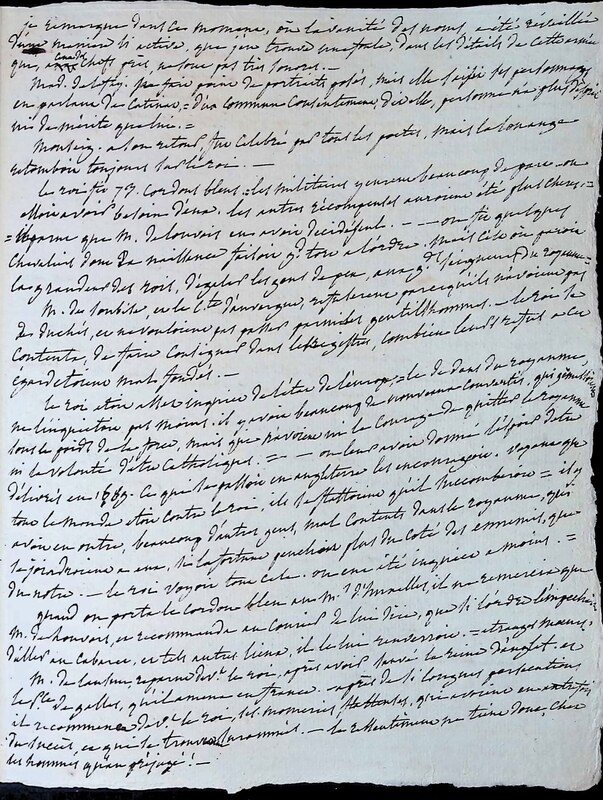 je remarque dans ce moment, où la vanité des noms, a été réveillée
d'une maniere si active, que j'en trouve une foule, dans les détails de cette armée
que, chefs près ne sont pas très connus. —
Mad. de la fay. ne fait point de portraits posés, mais elle saisit ses personnages
en parlant de Catinat, = d'un commun consentement, dit elle, personne n'a plus d'esprit
ni de mérite que lui =
Monseig. a son retour, fut celebré par tous les poetes, mais la louange
retomboit toujours sur le roi. —
le roi fit 73. cordons bleus, = les militaires y eurent beaucoup de part — on
alloit avoir besoin d'eux. les autres récompenses auroient été plus cheres =
il parut que M. de louvois en avoit décidé seul. — — — on fit quelques
chevaliers dont la naissance faisoit gd tort à l'ordre. mais c'est où paroit
la grandeur des rois, d'égaler les gens de peu, aux gds seigneurs du royaume
M. de soubise, et le Cte d'auvergne, refuserent parce qu'ils n'avoient pas
des duchés, et ne vouloient pas passer parmi les gentilshommes. — le roi se
contenta, de faire consigner dans les registres, combien leurs refus a cet
égard etoient mal fondés. —
le roi etoit assez inquiet de l'état de l'europe, = le dedans du royaume
ne l'inquietoit pas moins. il y avoit beaucoup de nouveaux convertis, qui gémissoient
sous le poids de la force, mais qui n'avoient ni le courage de quitter le royaume
ni la volonté d'être catholiques = — on leur avoit donné l'espoir d'etre
délivrés en 1689. ce qui se passoit en angleterre les encourageoit. voyant que
tout le monde etoit contre le roi, ils se flattoient qu'il succomberoit = il y
avoit en outre, beaucoup d'autres gens, mal contents dans le royaume, qui
se joindroient a eux, si la fortune penchoit plus du coté des ennemis, que
du notre. — le roi voyoit tout cela. on eut été inquiet a moins. =
quand on porta le cordon bleu au Ml d'huxelles, il ne remercia que
M. de louvois, et recommanda au courier de lui dire, que si l'ordre l'empechoit
d'aller au cabaret, et tels autres lieux, il le lui renverroit. = etranges moeurs.
M. de lausun, reparut dvt le roi, après avoir sauvé la reine d'anglet. et
le pce de galles, qu'il amena en france. après de si longues persecutions
il recommença dvt le roi, ses momeries flatteuses, qui avoient eu autrefois
du succès, et qui se trouverent surannées. — le ressentiment ne tient donc, chez
les hommes qu'au préjugé ! —